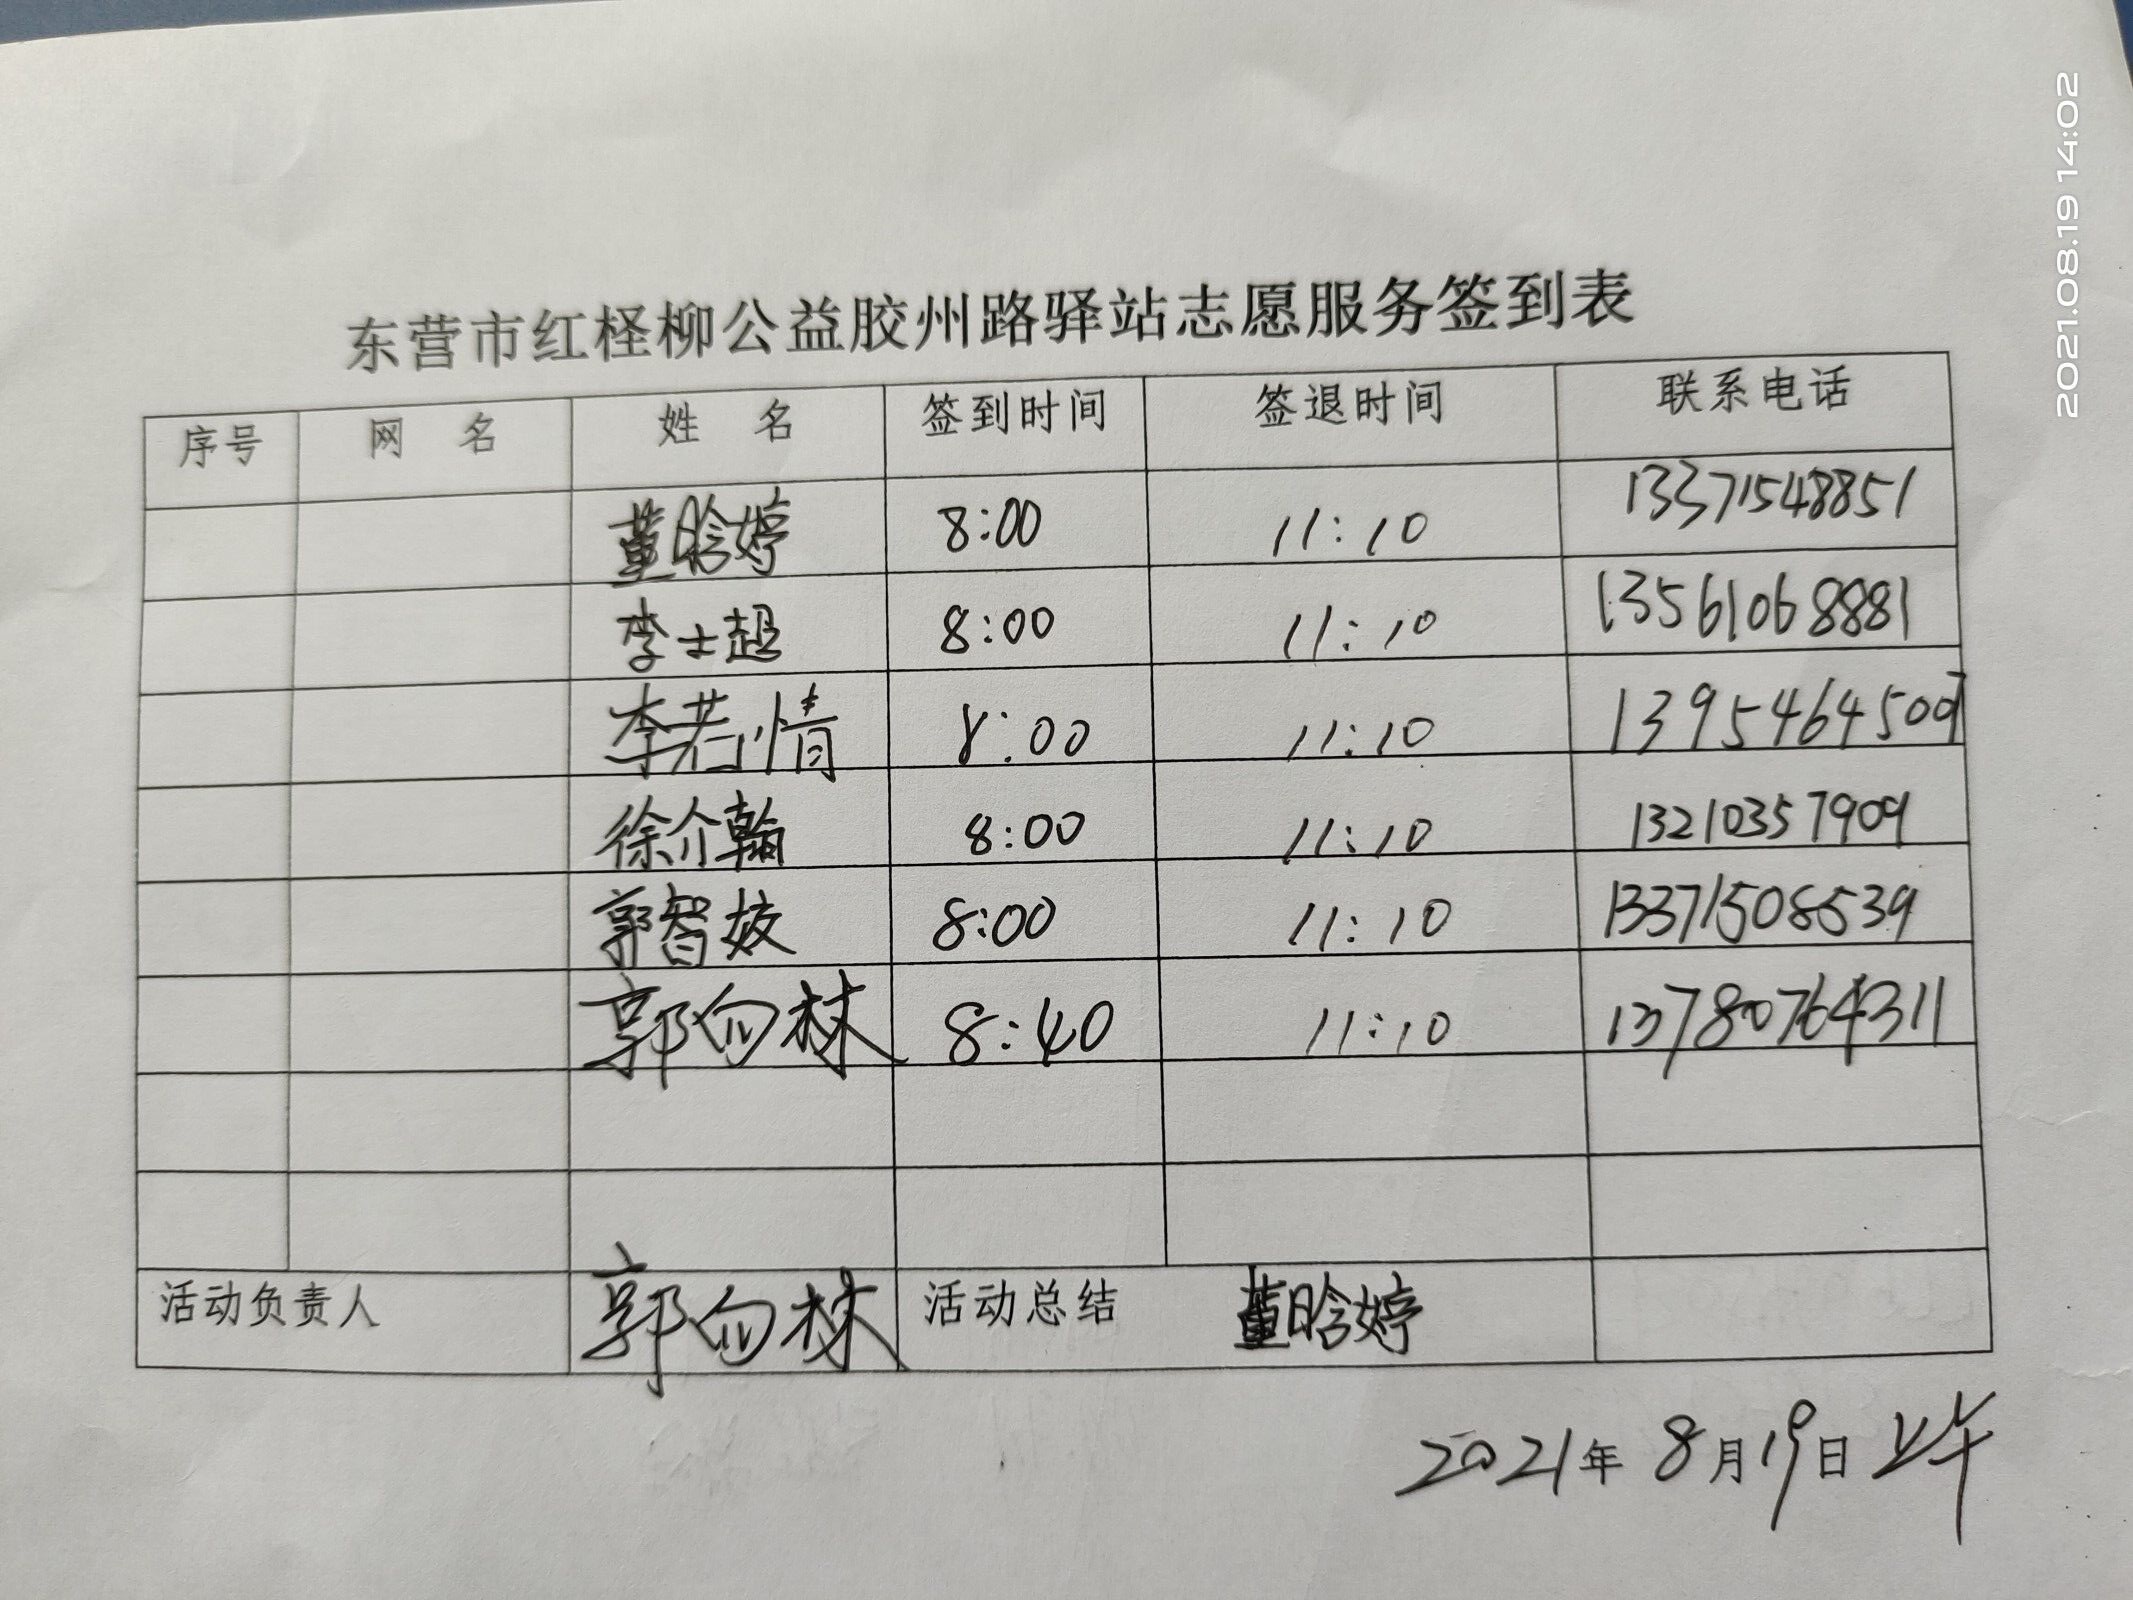 2021.08.19 14:02
东营市红柽柳公益胶州路驿站志愿服务签到表
序号 网 名 姓 名 签到时间 签退时间 联系电话
董晗婷 8:00 11:10 13371548851
李士超 8:00 11:10 13561068881
李若情 8:00 11:10 13954645009
徐介翰 8:00 11:10 13210357909
郭智姣 8:00 11:10 13371508539
郭向林 8:40 11:10 13780764311
活动负责人 郭向林 活动总结 董晗婷
2021年 8月19日 上午